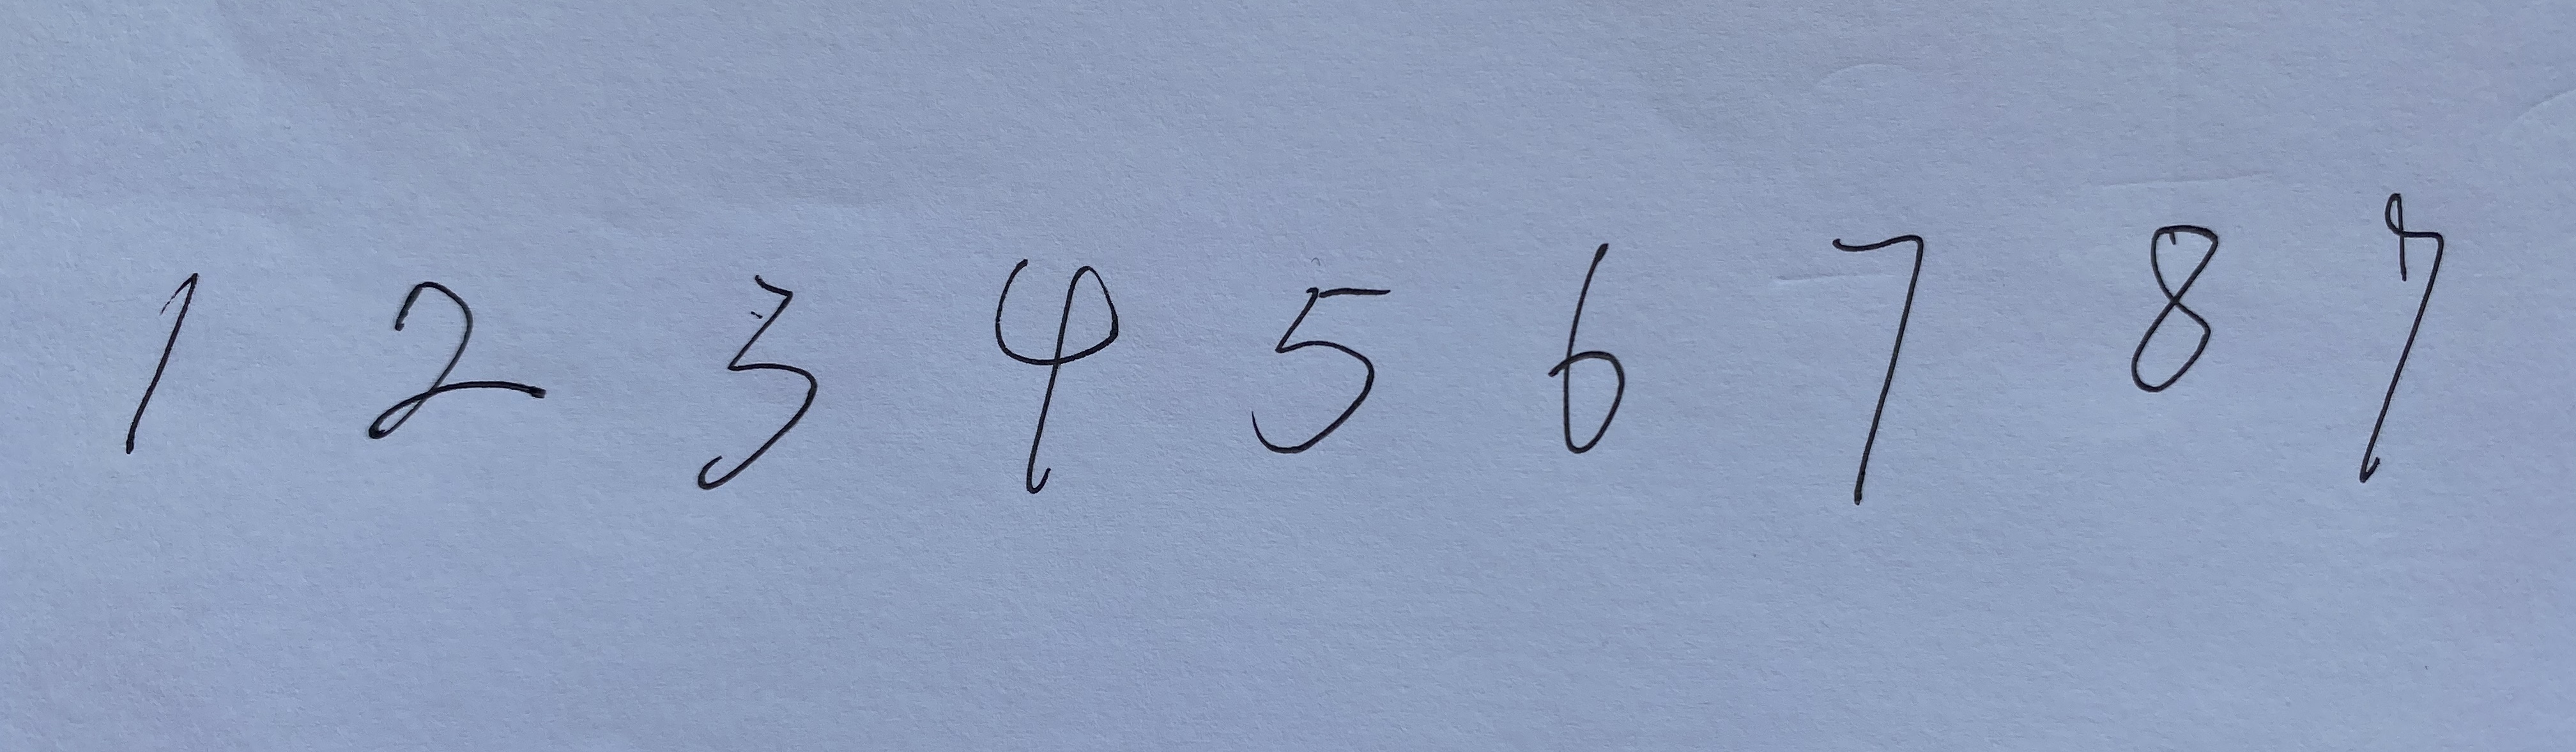 1 2 3 4 5 6 7 8 7